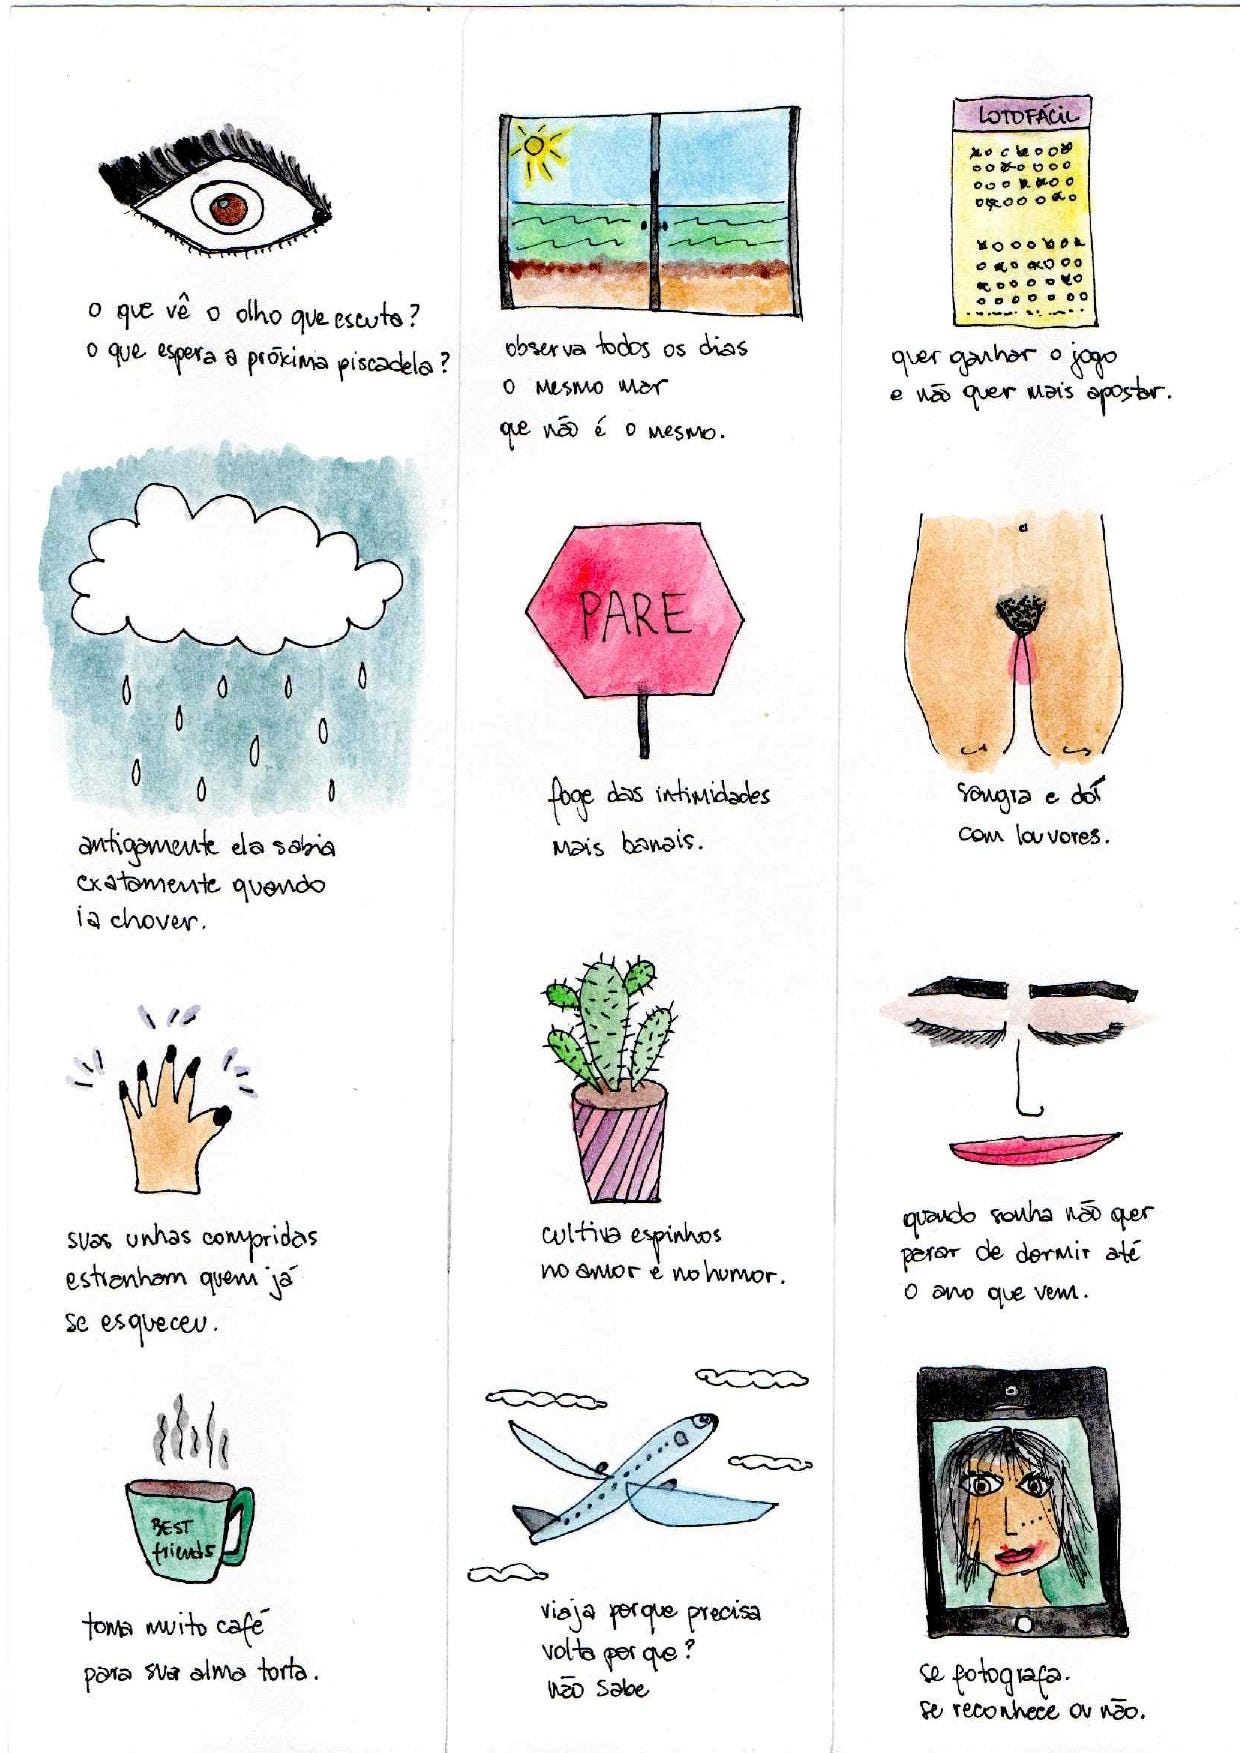 o que vê o olho que escuta?
o que espera a próxima piscadela?
antigamente ela sabia
exatamente quando
ia chover.
suas unhas compridas
estranham quem já
se esqueceu.
BEST
friends
toma muito café
para sua alma torta.
observa todos os dias
o mesmo mar
que não é o mesmo.
PARE
foge das intimidades
mais banais.
cultiva espinhos
no amor e no humor.
viaja porque precisa
volta por que?
não sabe
LOTOFÁCIL
quer ganhar o jogo
e não quer mais apostar.
sangra e dói
com louvores.
quando sonha não quer
parar de dormir até
o ano que vem.
se fotografa.
se reconhece ou não.